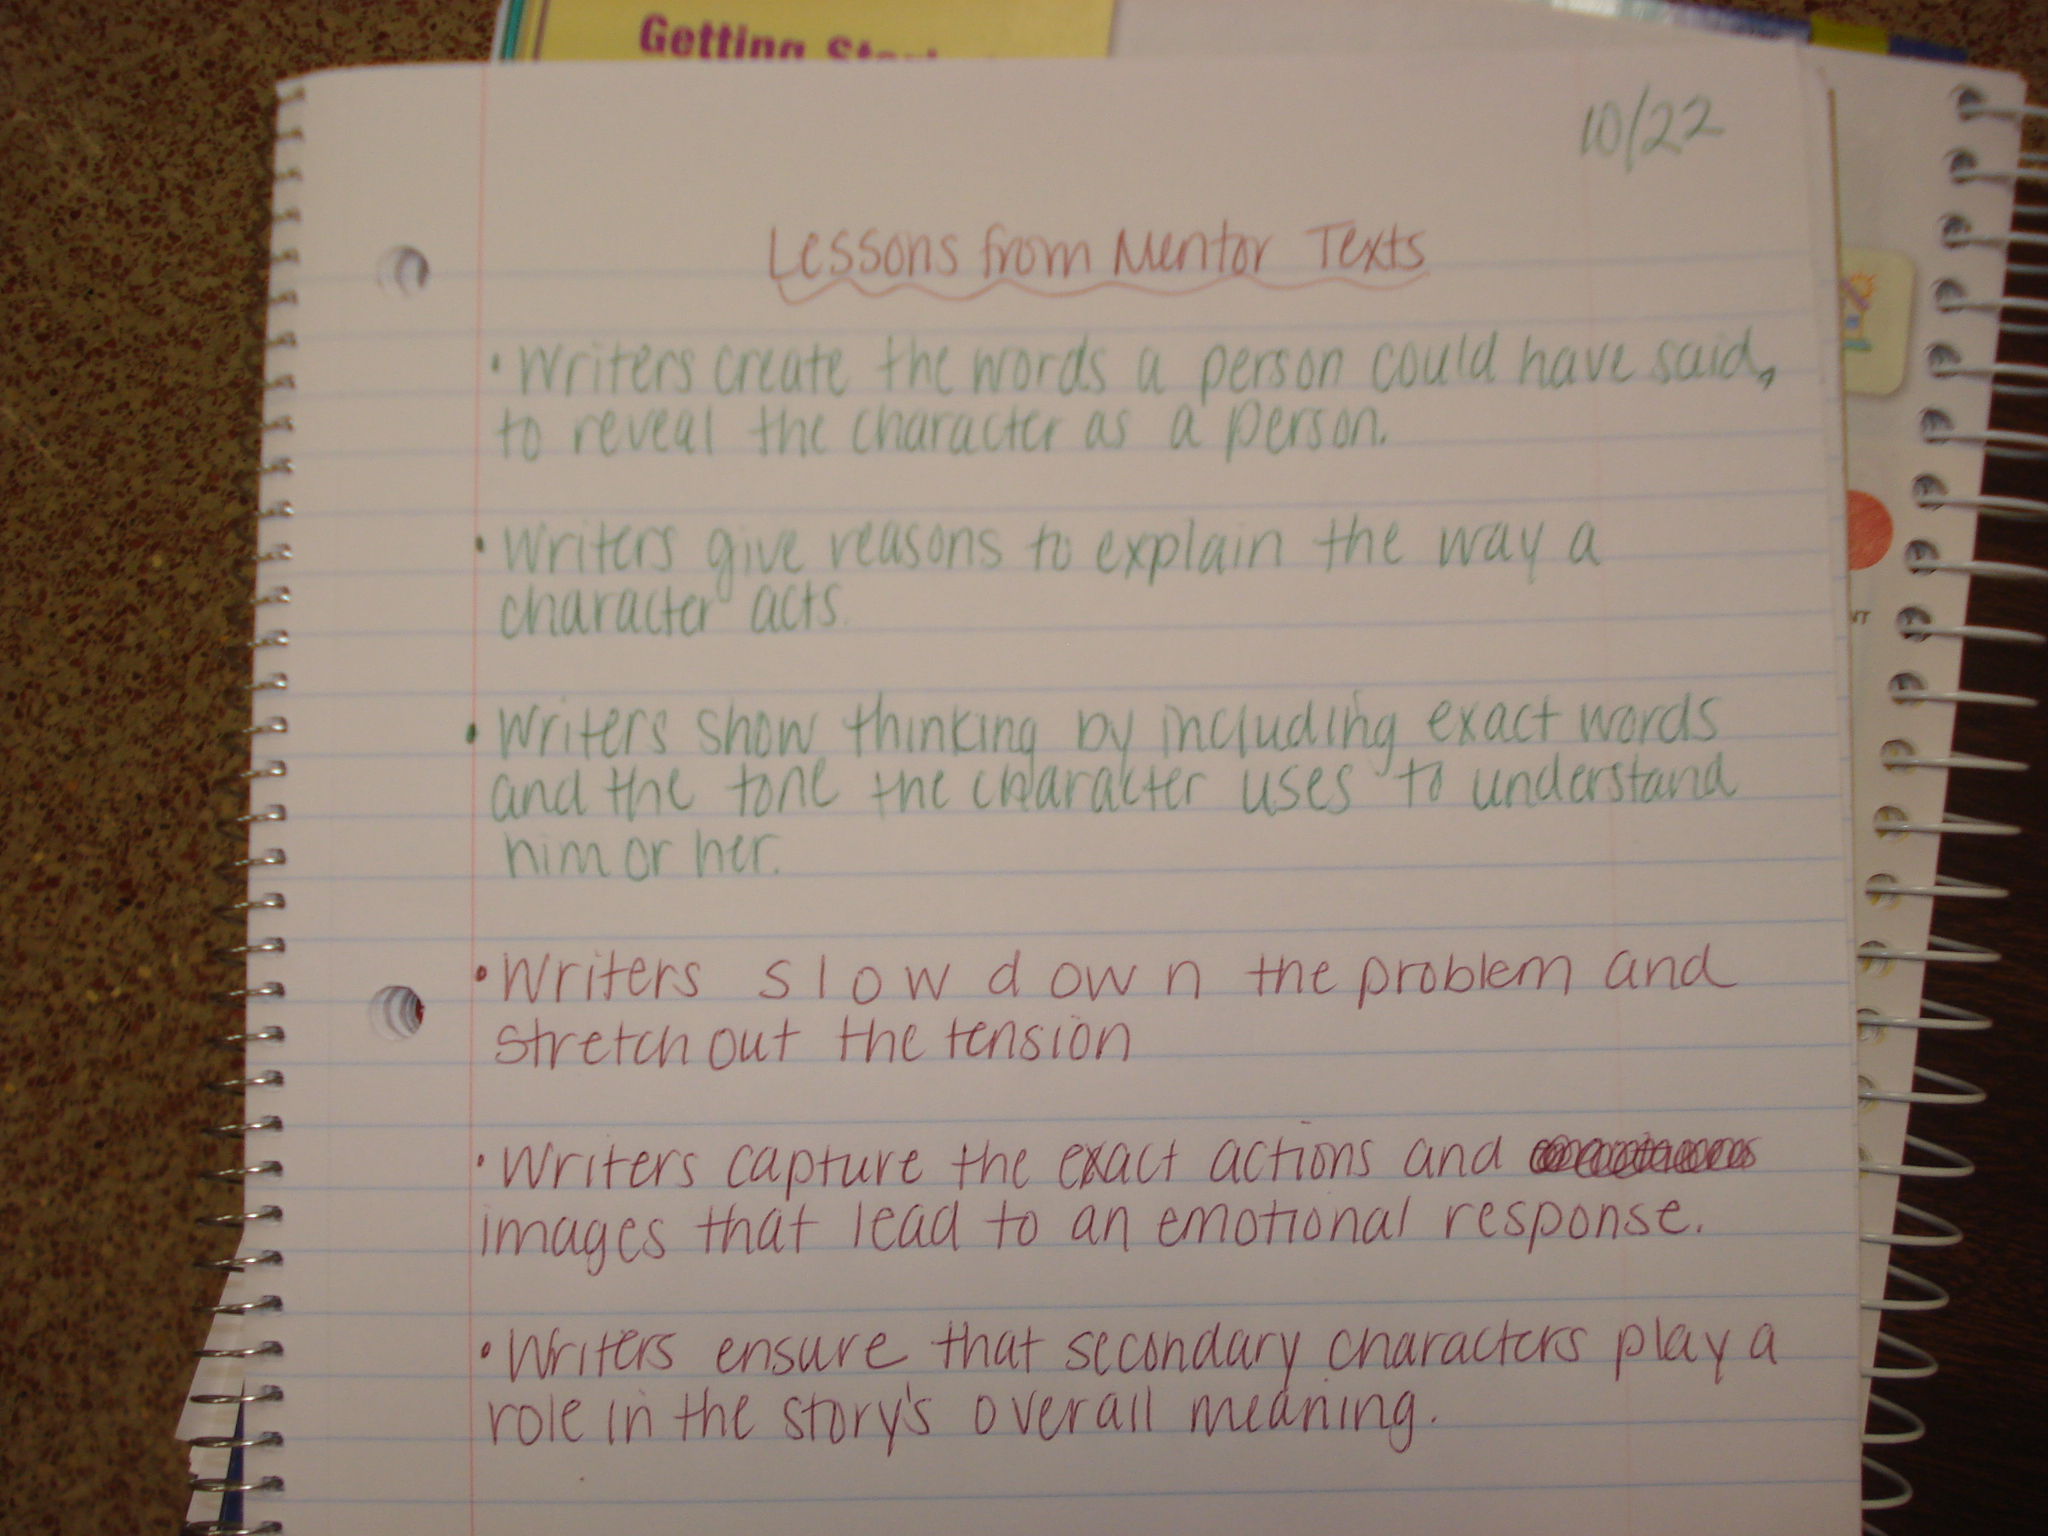 Getting
10/22
Lessons from Mentor Texts
• Writers create the words a person could have said,
to reveal the character as a person.
• Writers give reasons to explain the way a
character acts.
• Writers show thinking by including exact words
and the tone the character uses to understand
him or her.
• Writers s l o w d o w n the problem and
stretch out the tension
• Writers capture the exact actions and
images that lead to an emotional response.
• Writers ensure that secondary characters play a
role in the story's overall meaning.